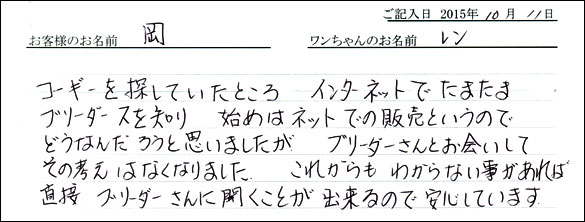 ご記入日 2015年 10月 11日
お客様のお名前 岡 ワンちゃんのお名前 レン
コーギーを探していたところ インターネットでたまたま
ブリーダースを知り 始めはネットでの販売というので
どうなんだろうと思いましたが ブリーダーさんとお会いして
その考えはなくなりました これからも わからない事があれば
直接 ブリーダーさんに聞くことが出来るので安心しています